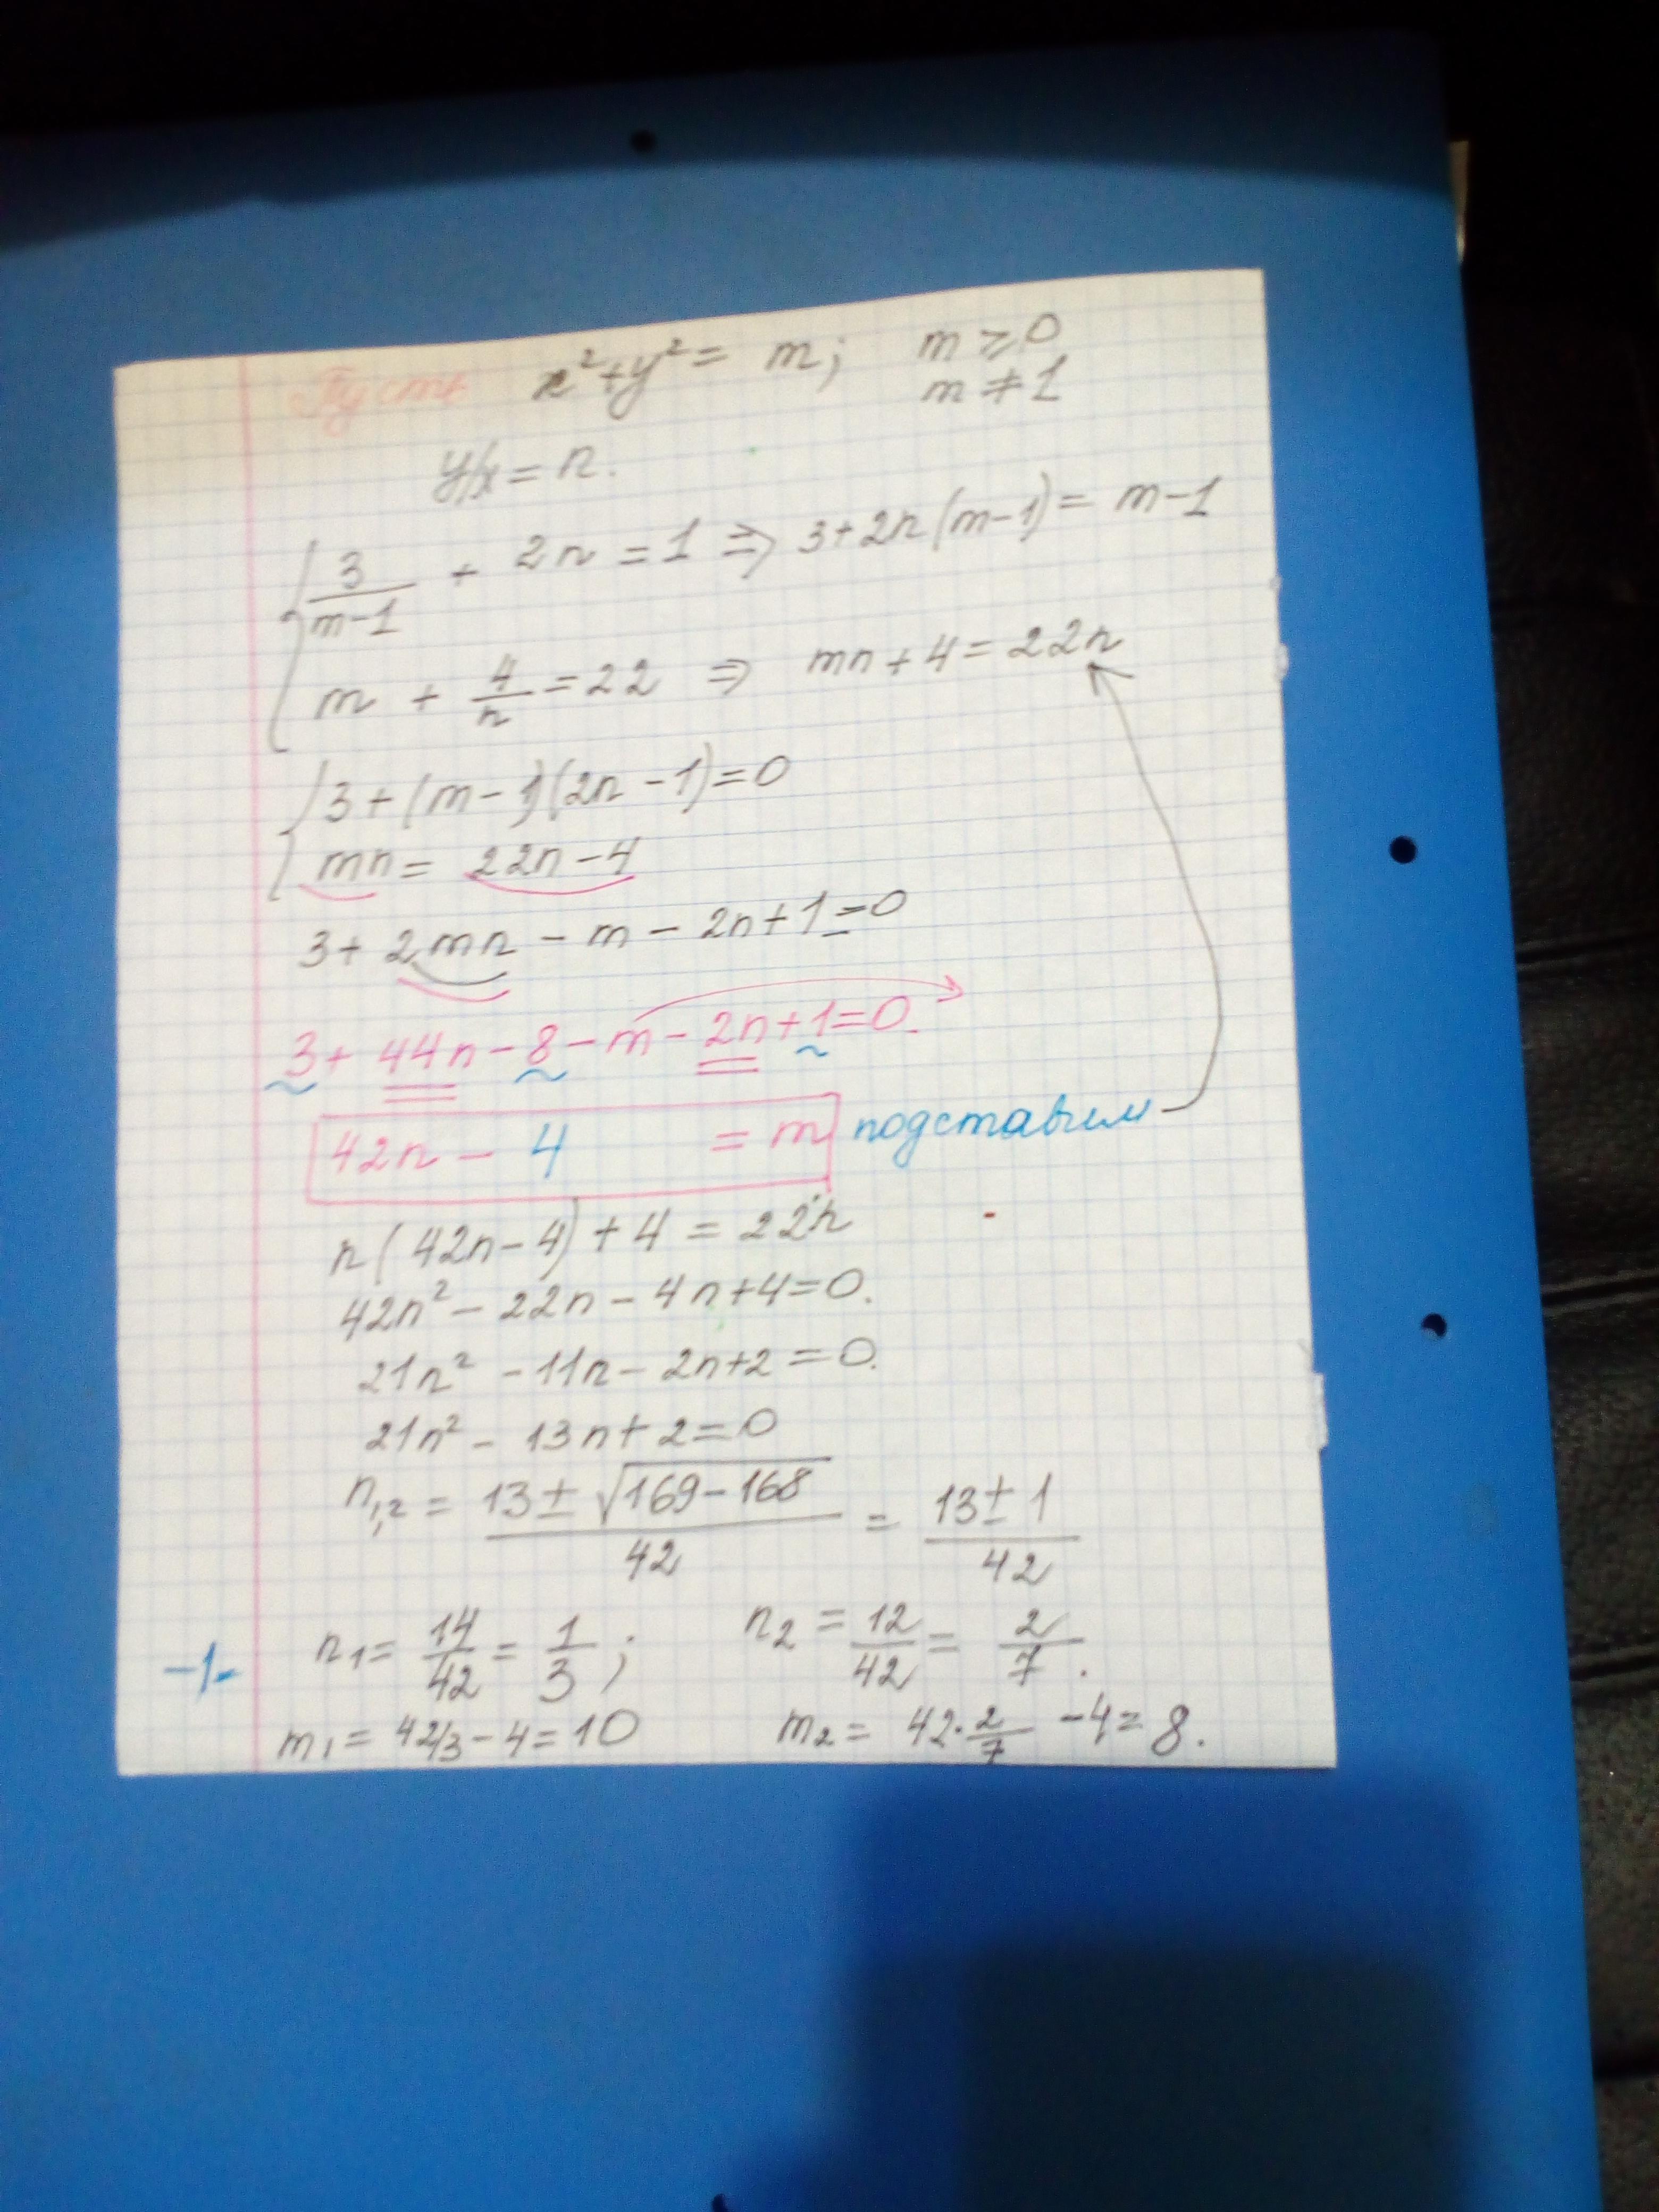 Пусть x² + y² = m; m ≥ 0
m ≠ 1
y/x = n.
3/(m-1) + 2n = 1 ⇒ 3 + 2n(m-1) = m-1
m + 4/n = 22 ⇒ mn + 4 = 22n
3 + (m-1)(2n-1) = 0
mn = 22n - 4
3 + 2mn - m - 2n + 1 = 0
3 + 44n - 8 - m - 2n + 1 = 0.
42n - 4 = m подставим
n(42n - 4) + 4 = 22n
42n² - 22n - 4n + 4 = 0.
21n² - 11n - 2n + 2 = 0.
21n² - 13n + 2 = 0
n₁,₂ = (13 ± √(169-168))/42 = (13 ± 1)/42
n₁ = 14/42 = 1/3; n₂ = 12/42 = 2/7.
-1-
m₁ = 42/3 - 4 = 10 m₂ = 42·2/7 - 4 = 8.